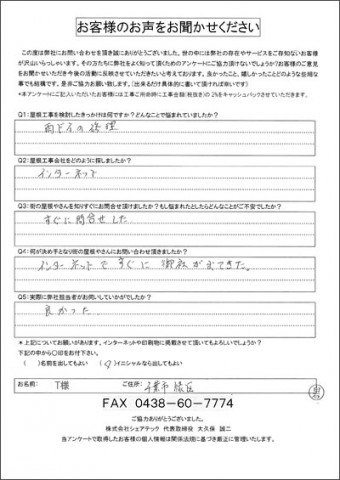 お客様のお声をお聞かせください
この度は弊社にお問い合わせを頂き誠にありがとうございました。世の中には弊社の存在やサービスをご存知ないお客様
が沢山いらっしゃいます。その方たちに弊社をよく知って頂くためのアンケートにご協力頂けないでしょうか?お客様のご意見
をお聞かせいただき今後の活動に反映させていただきたいと考えております。良かったこと、嬉しかったことどのような些細な事
でも結構です。是非ご協力お願い致します。(出来るだけ具体的に書いて頂ければ幸いです)
*本アンケートにご記入いただいたお客様には工事ご依頼時に工事金額(税抜き)の2%をキャッシュバックさせていただきます。
Q1:屋根工事を検討したきっかけは何ですか?どんなことで悩まれていましたか?
雨ドイの修理
Q2:屋根工事会社をどのように探しましたか?
インターネット
Q3:街の屋根やさんを知りすぐにお問合せ頂けましたか?もし悩まれたとしたらどんなことがご不安でしたか?
すぐに問合せした
Q4:何が決め手となり街の屋根やさんにお問い合わせ頂きましたか?
インターネットですぐに御社が出てきた。
Q5:実際に弊社担当者がお伺いしていかがでしたか?
良かった
*上記についてお願いがあります。インターネットや印刷物に掲載させて頂いてもよろしいでしょうか?
下記の中から○印をお付け下さい。
( )名前を出してもよい ( )イニシャルなら出してもよい
お名前: T様 ご住所: 千葉市緑区
FAX 0438-60-7774
ご協力ありがとうございました。
株式会社シェアテック 代表取締役 大久保 誠二
当アンケートで取得したお客様の個人情報は関係法規に基づき厳正に管理いたします。